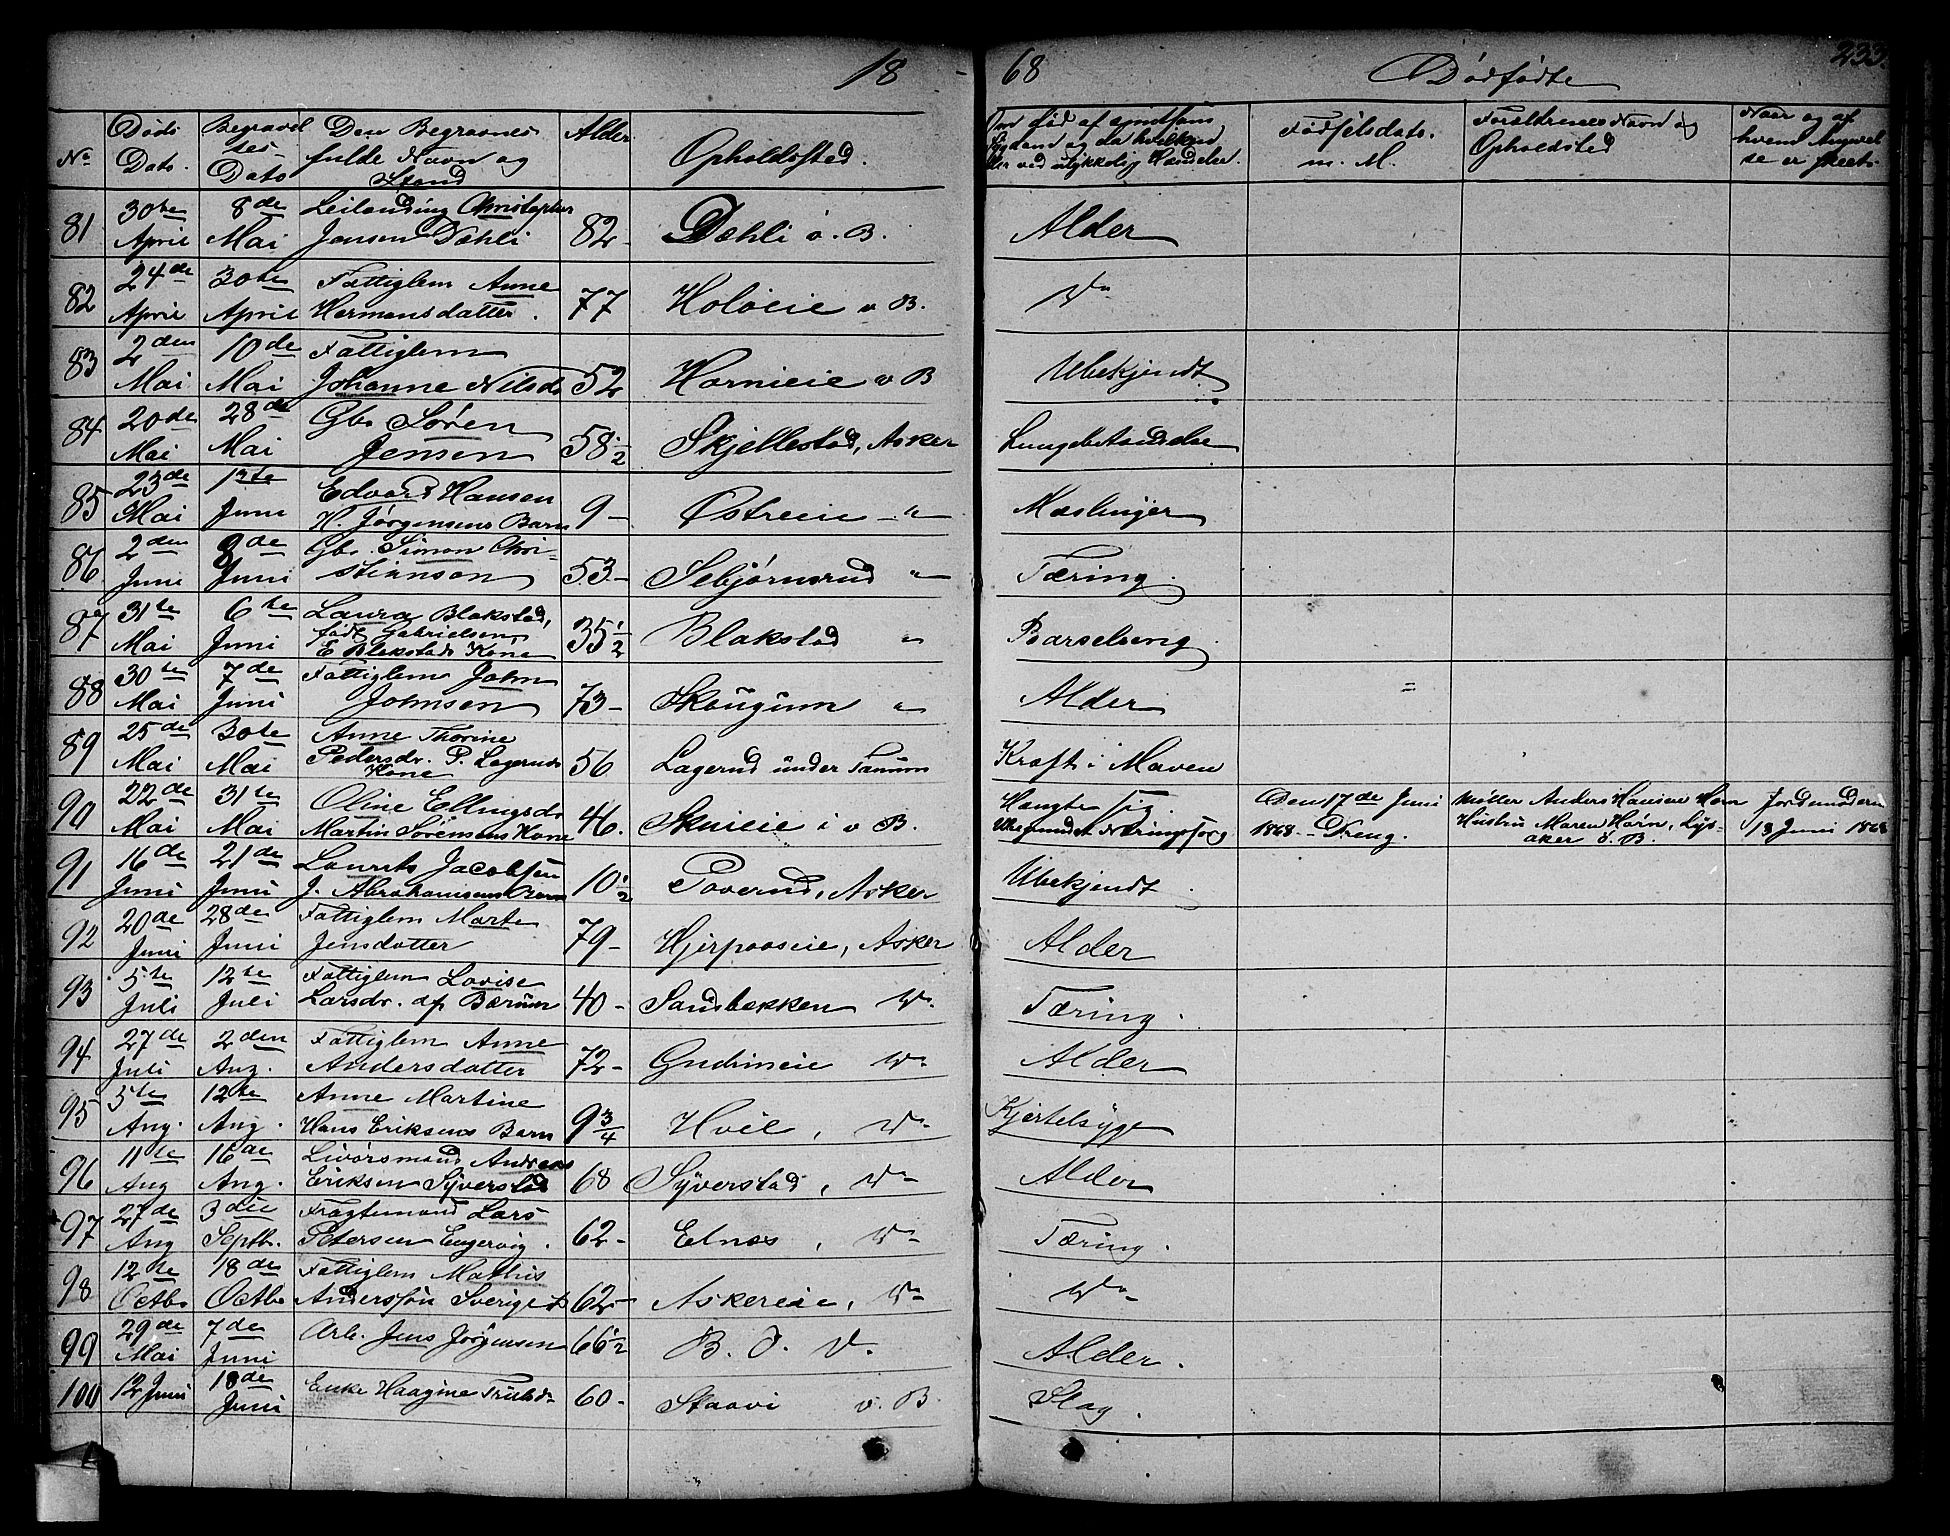 18 - 68 Dødfødte 233.
No
Døds
Dato.
Begravel
ses
Dato
Den Begravnes
fulde Navn og
Stand
Alder
Opholdssted.
Om død af
og da hvilken
eller ved ulykkelig Hændelse.
Fødselsdato.
m. M.
Forældrenes Navn og
Opholdsted
Naar og af
hvem Anmeldel
se er skeet.
81 30te April 8de Mai Leilænding Christopher
Jensen Dæhli 82 - Dæhli ø. B. Alder
82 24de April 30te April Fattiglem Anne
Hermansdatter. 77 Holøeie v B. Do
83 2den Mai 10de Mai Fattiglem
Johanne Nilsdr 52 Hornieie v B Ubekjendt
84 20de Mai 28de Mai Gbr Søren
Jensen 58 1/2 Skjellestad, Asker Lungebetændelse
85 23de Mai 1ste Juni Edvard Hansen
H. Jørgensens Barn 9 - Østreeie - " - Mæslinger
86. 2den Juni 8de Juni Gbr. Simon Chri-
stiansen 53. - Sebjørnsrud " - Tæring.
87 31te Mai 6te Juni Laura Blakstad,
født Gabrielsen
E Blakstads Kone 35 1/2 Blakstad " Barselseng.
88 30te Mai 7de Juni Fattiglem John
Johnsen 73 - Skougum " Alder
89 25de Mai 30te Mai Anne Thorine
Pedersdr. P. Lageruds
Kone 56 Lagerud under Tanum Kræft i Maven
90 22de Mai 31te Mai Oline Ellingsdr
Martin Sørensens Kone 46. Skuieie i v B. Hængte sig.
Ubegrundet Næringssorg
Den 17de Juni
1868 - Dreng.
Møller Anders Hansen Horn
Hustru Maren Horn, Lys-
aker ø. B.
Jordmoderen
18 Juni 1868
91 16de Juni 21de Juni Laurits Jacobsen
J. Abrahamsens Barn 10 1/2 Poverud, Asker Ubekjendt.
92 20de Juni 28de Juni Fattiglem Marte
Jensdatter 79 - Hjerpaaseie, Asker Alder
93 5te Juli 12te Juli Fattiglem Lovise
Larsdr. af Bærum 40 - Sandbakken Do. Tæring.
94 27de Juli 2den Aug. Fattiglem Anne
Andersdatter 72 - Gudimeie Do Alder
95 5te Aug. 12te Aug. Anne Martine
Hans Eriksens Barn 9 3/4 Hvil, Do Kjertelsyge
96 11te Aug 16de Aug. Livørsmand Andreas
Eriksen Syverstad 68 Syverstad, Do Alder
97 27de Aug 3die Septb. Fragtemand Lars
Petersen Engervig. 62 - Elnæs, Do Tæring.
98 12te Octbr 18de Octbr Fattiglem Mathis
Anderssøn Sverige 62 - Askereie, Do Do
99 29de Mai 7de Juni Arb. Jens Jørgensen 66 1/2 B. Ø. V. Alder.
100 12 Juni 18de Juni Enke Haagine Trulsdr 60 - Staavi v. B. Slag.